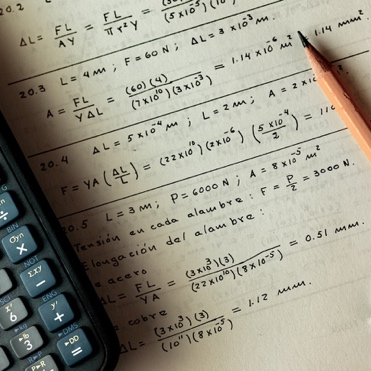 20.2 L
ΔL = FL/AY = FL/πr²Y = (5x10⁻⁵)(10
20.3 L = 4 m ; F = 60 N ; ΔL = 3 x10⁻³ m.
A = FL/YΔL = (60)(4)/(7x10¹⁰)(3x10⁻³) = 1.14 x10⁻⁶ m² = 1.14 mm².
20.4 ΔL = 5x10⁻⁴ m ; L = 2 m ; A = 2x10
F = YA (ΔL/L) = (22x10¹⁰)(2x10⁻⁶) (5x10⁻⁴/2) = 11
0.5 L = 3 m ; P = 6000 N ; A = 8x10⁻⁵ m²
Tensión en cada alambre : F = P/2 = 3000 N.
Elongación del alambre :
acero
ΔL = FL/YA = (3x10³)(3)/(22x10¹⁰)(8x10⁻⁵) = 0.51 mm.
cobre
ΔL = (3x10³)(3)/(10¹¹)(8x10⁻⁵) = 1.12 mm.
÷
Oyn
NOT
Σxy-
ENG
y'
+
6
3
►DMS
►DD
=